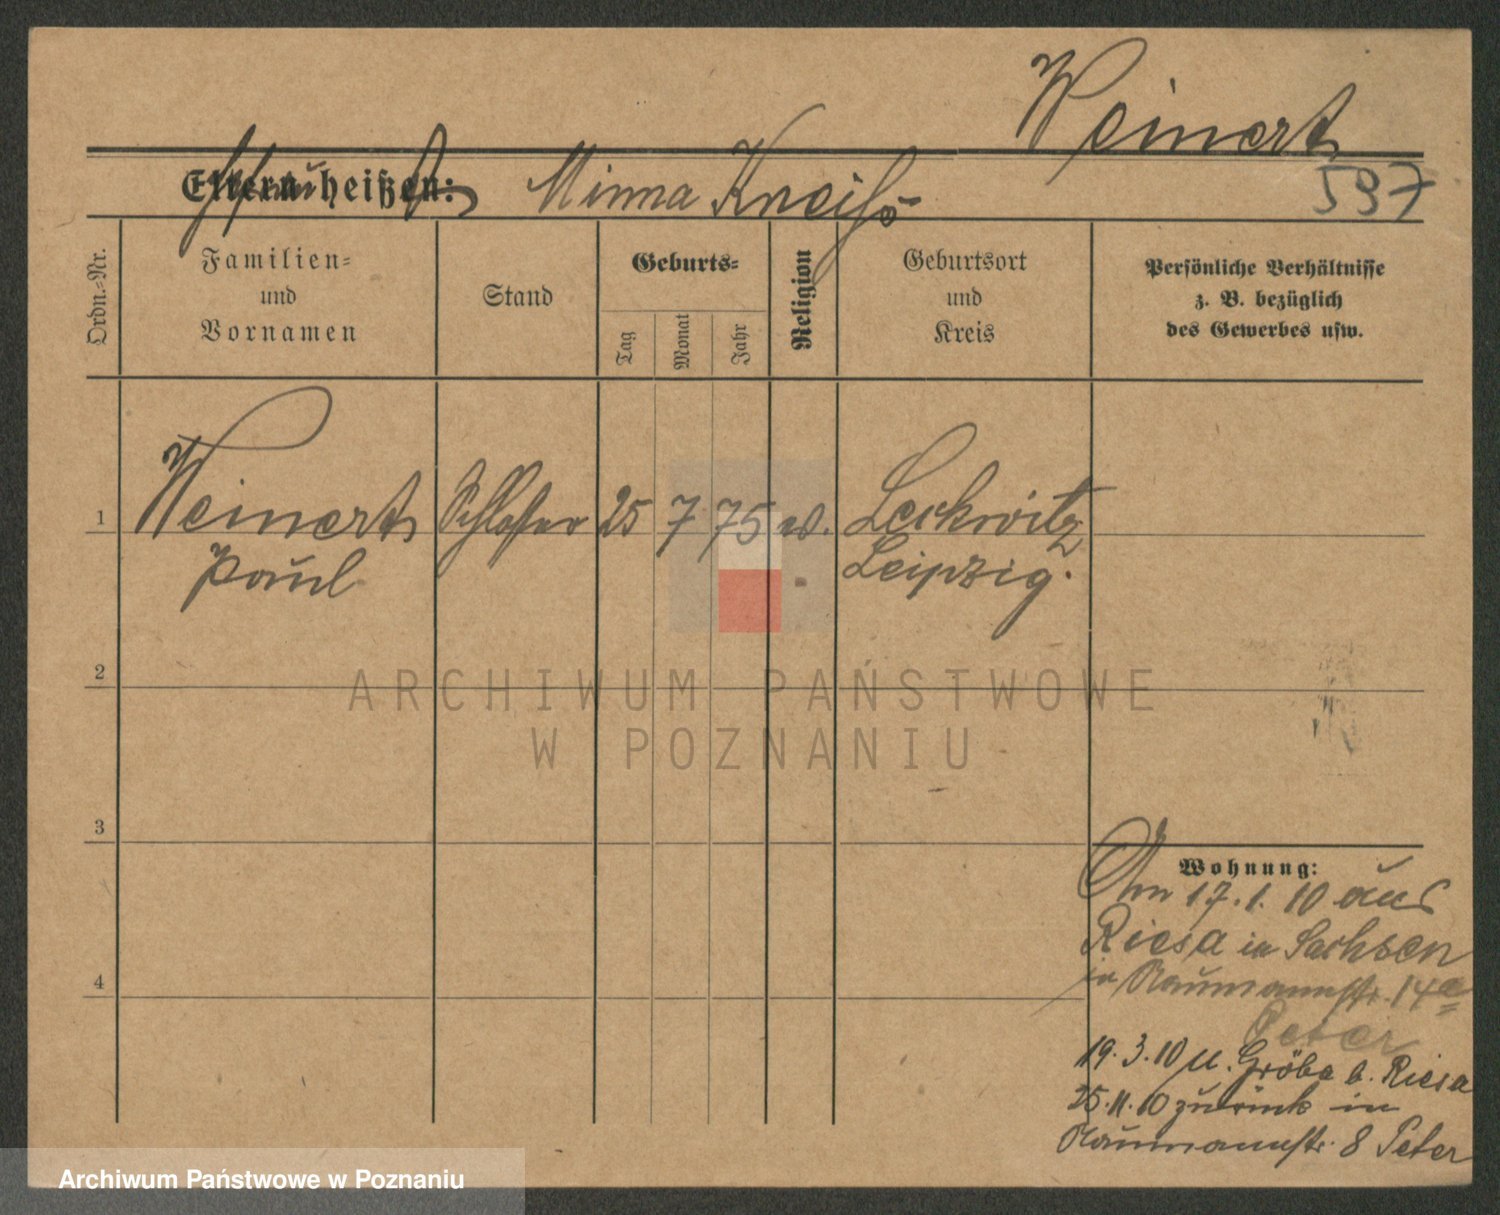 Weinert
597
Eltern heißen: Minna Kneiß
Ordn.-Nr.
Familien-
und
Vornamen
Stand
Geburts-
Tag
Monat
Jahr
Religion
Geburtsort
und
Kreis
Persönliche Verhältnisse
z. B. bezüglich
des Gewerbes usw.
1 Weinert Schlosser 25 7 75 ev. Leckwitz
Paul Leipzig.
2
3
4
Wohnung:
Am 17.1.10 aus
Riesa in Sachsen
in Naumannstr. 14a
Peter
19.3.10 u. Gröba b. Riesa
25.11.10 zurück in
Naumannstr. 8 Peter
ARCHIWUM PAŃSTWOWE
W POZNANIU
Archiwum Państwowe w Poznaniu